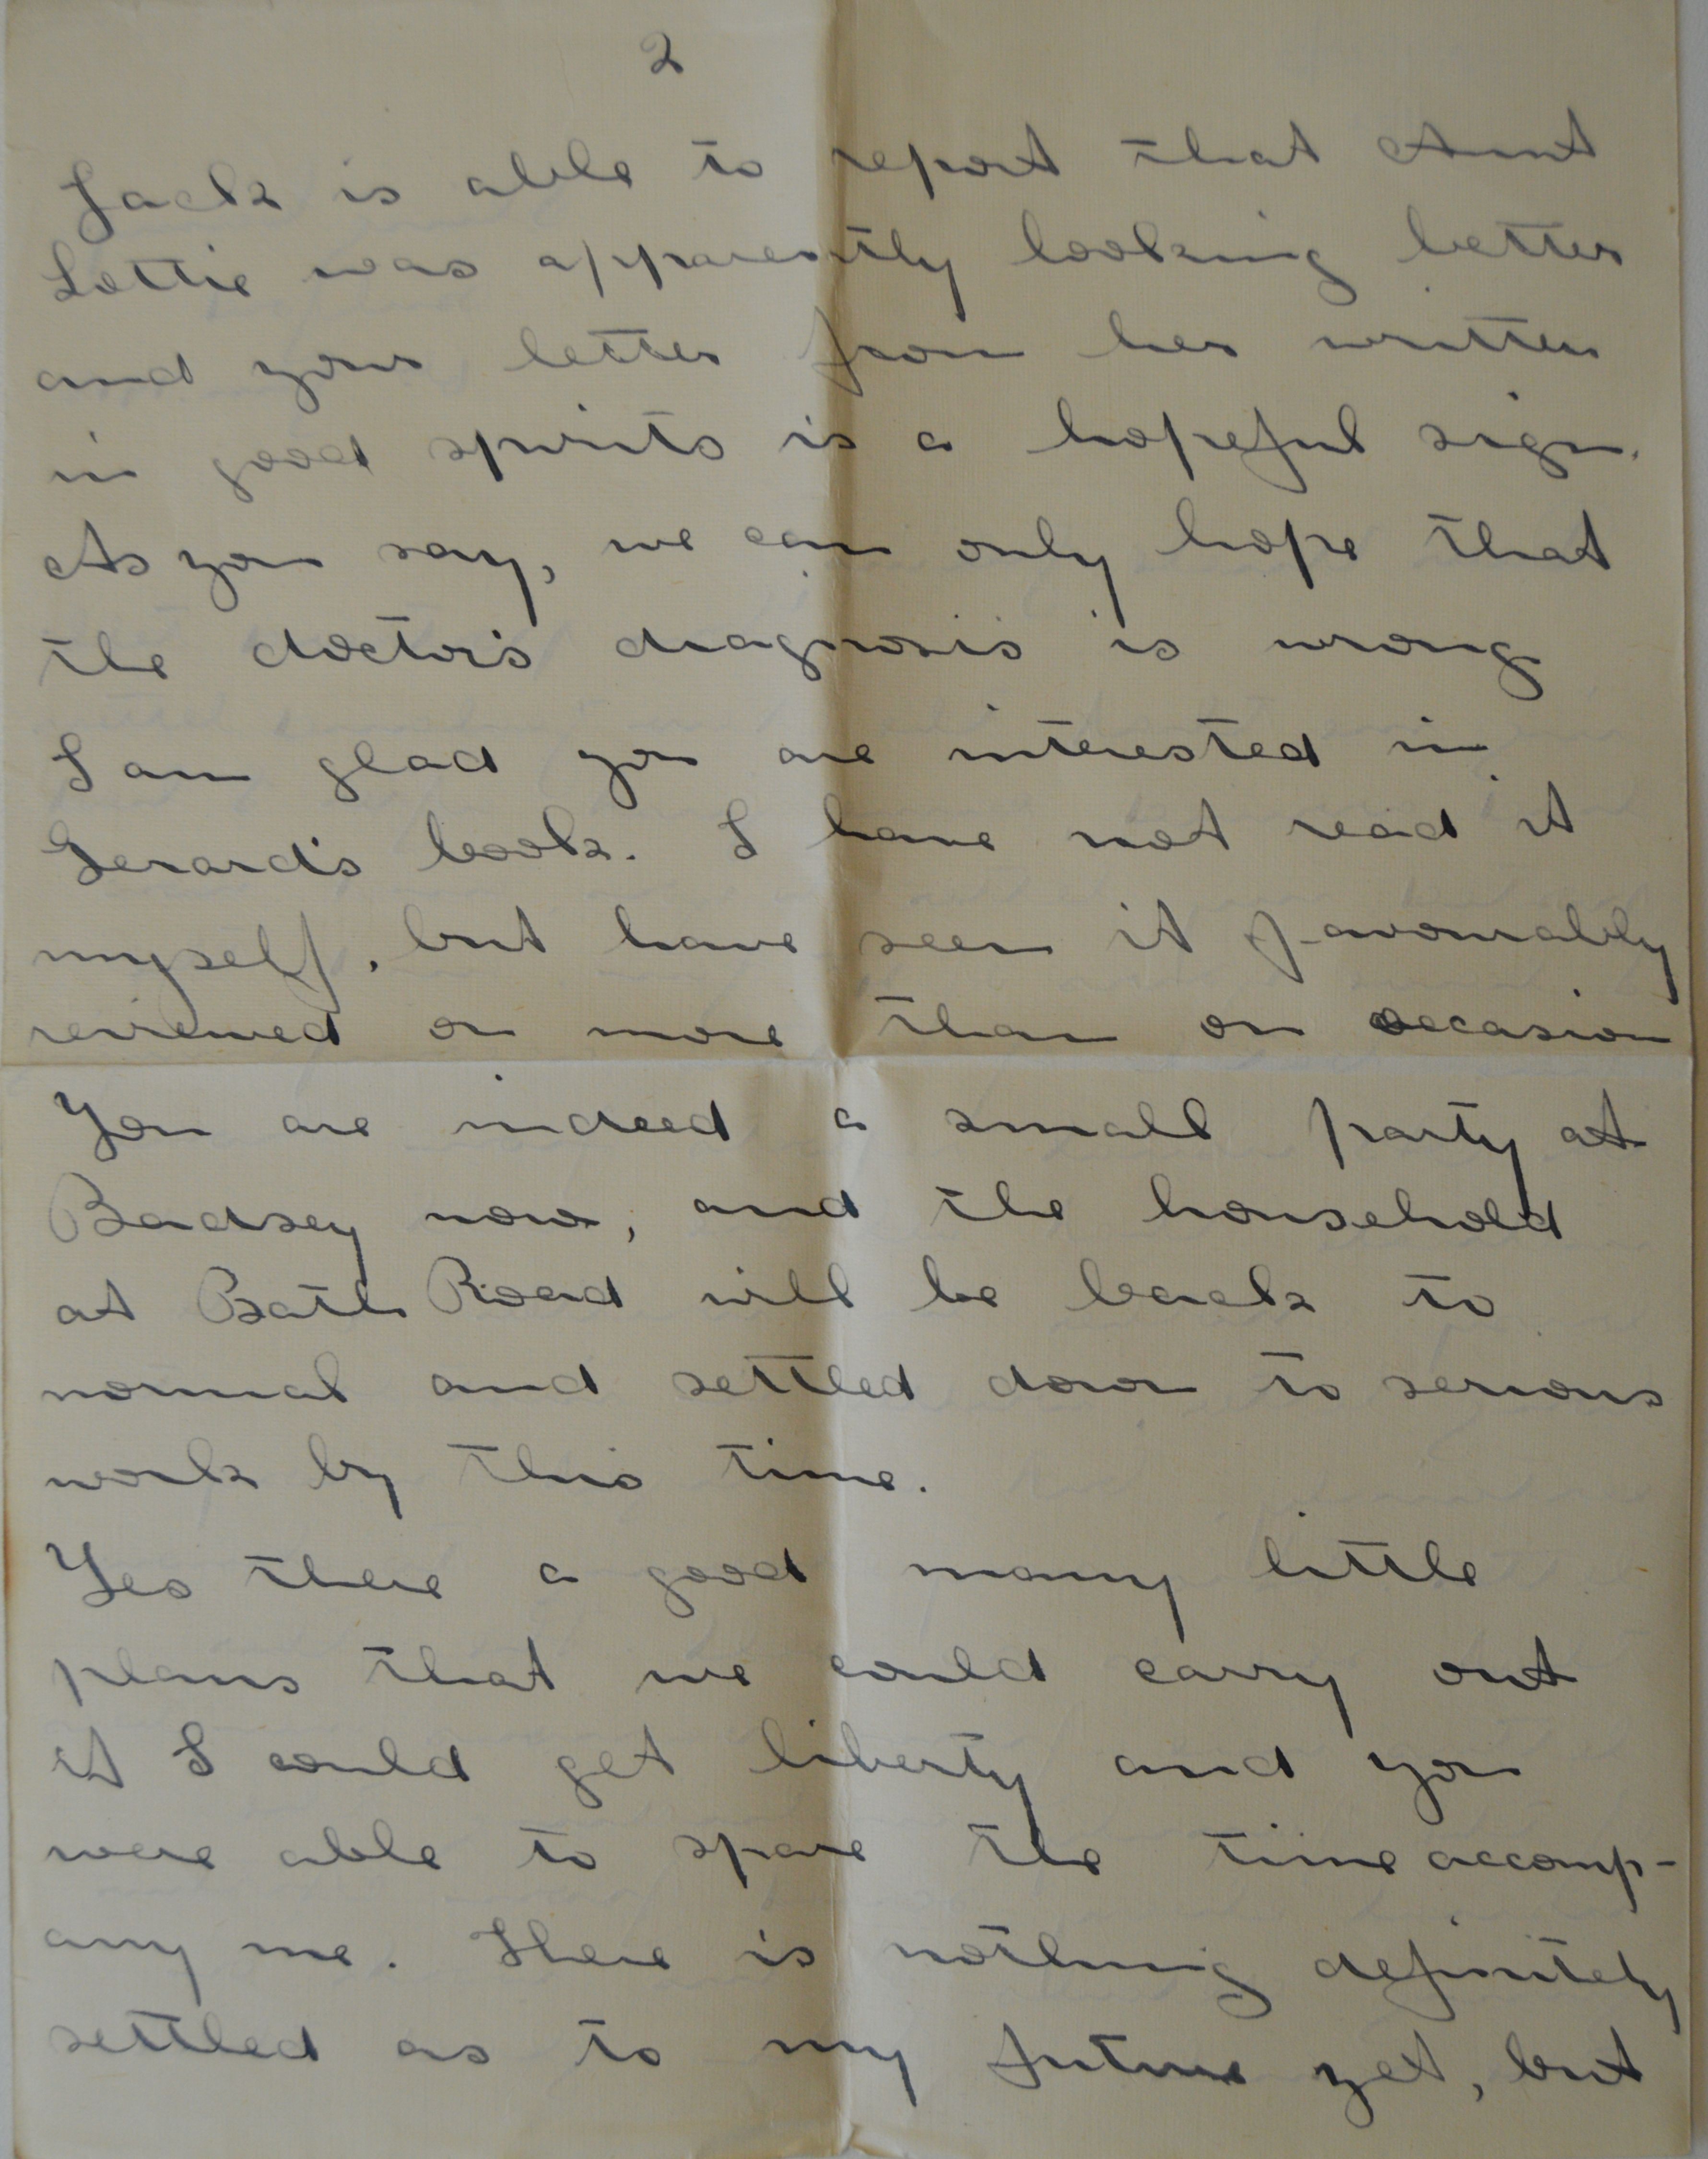 2
Jack is able to report that Aunt
Lottie was apparently looking better
and your letter from her written
in good spirits is a hopeful sign.
As you say, we can only hope that
the doctor's diagnosis is wrong
I am glad you are interested in
Gerard's book. I have not read it
myself, but have seen it favourably
reviewed on more than on occasion
You are indeed a small party at
Badsey now, and the household
at Bath Road will be back to
normal and settled down to serious
work by this time.
Yes there a good many little
plans that we could carry out
it I could get liberty and you
were able to spare the time accomp-
any me. There is nothing definitely
settled as to my future yet, but